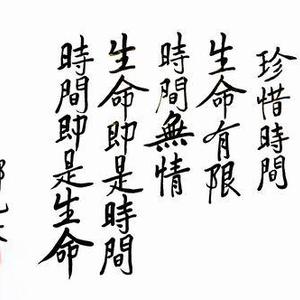 珍惜時間
生命有限
時間無情
生命即是時間
時間即是生命